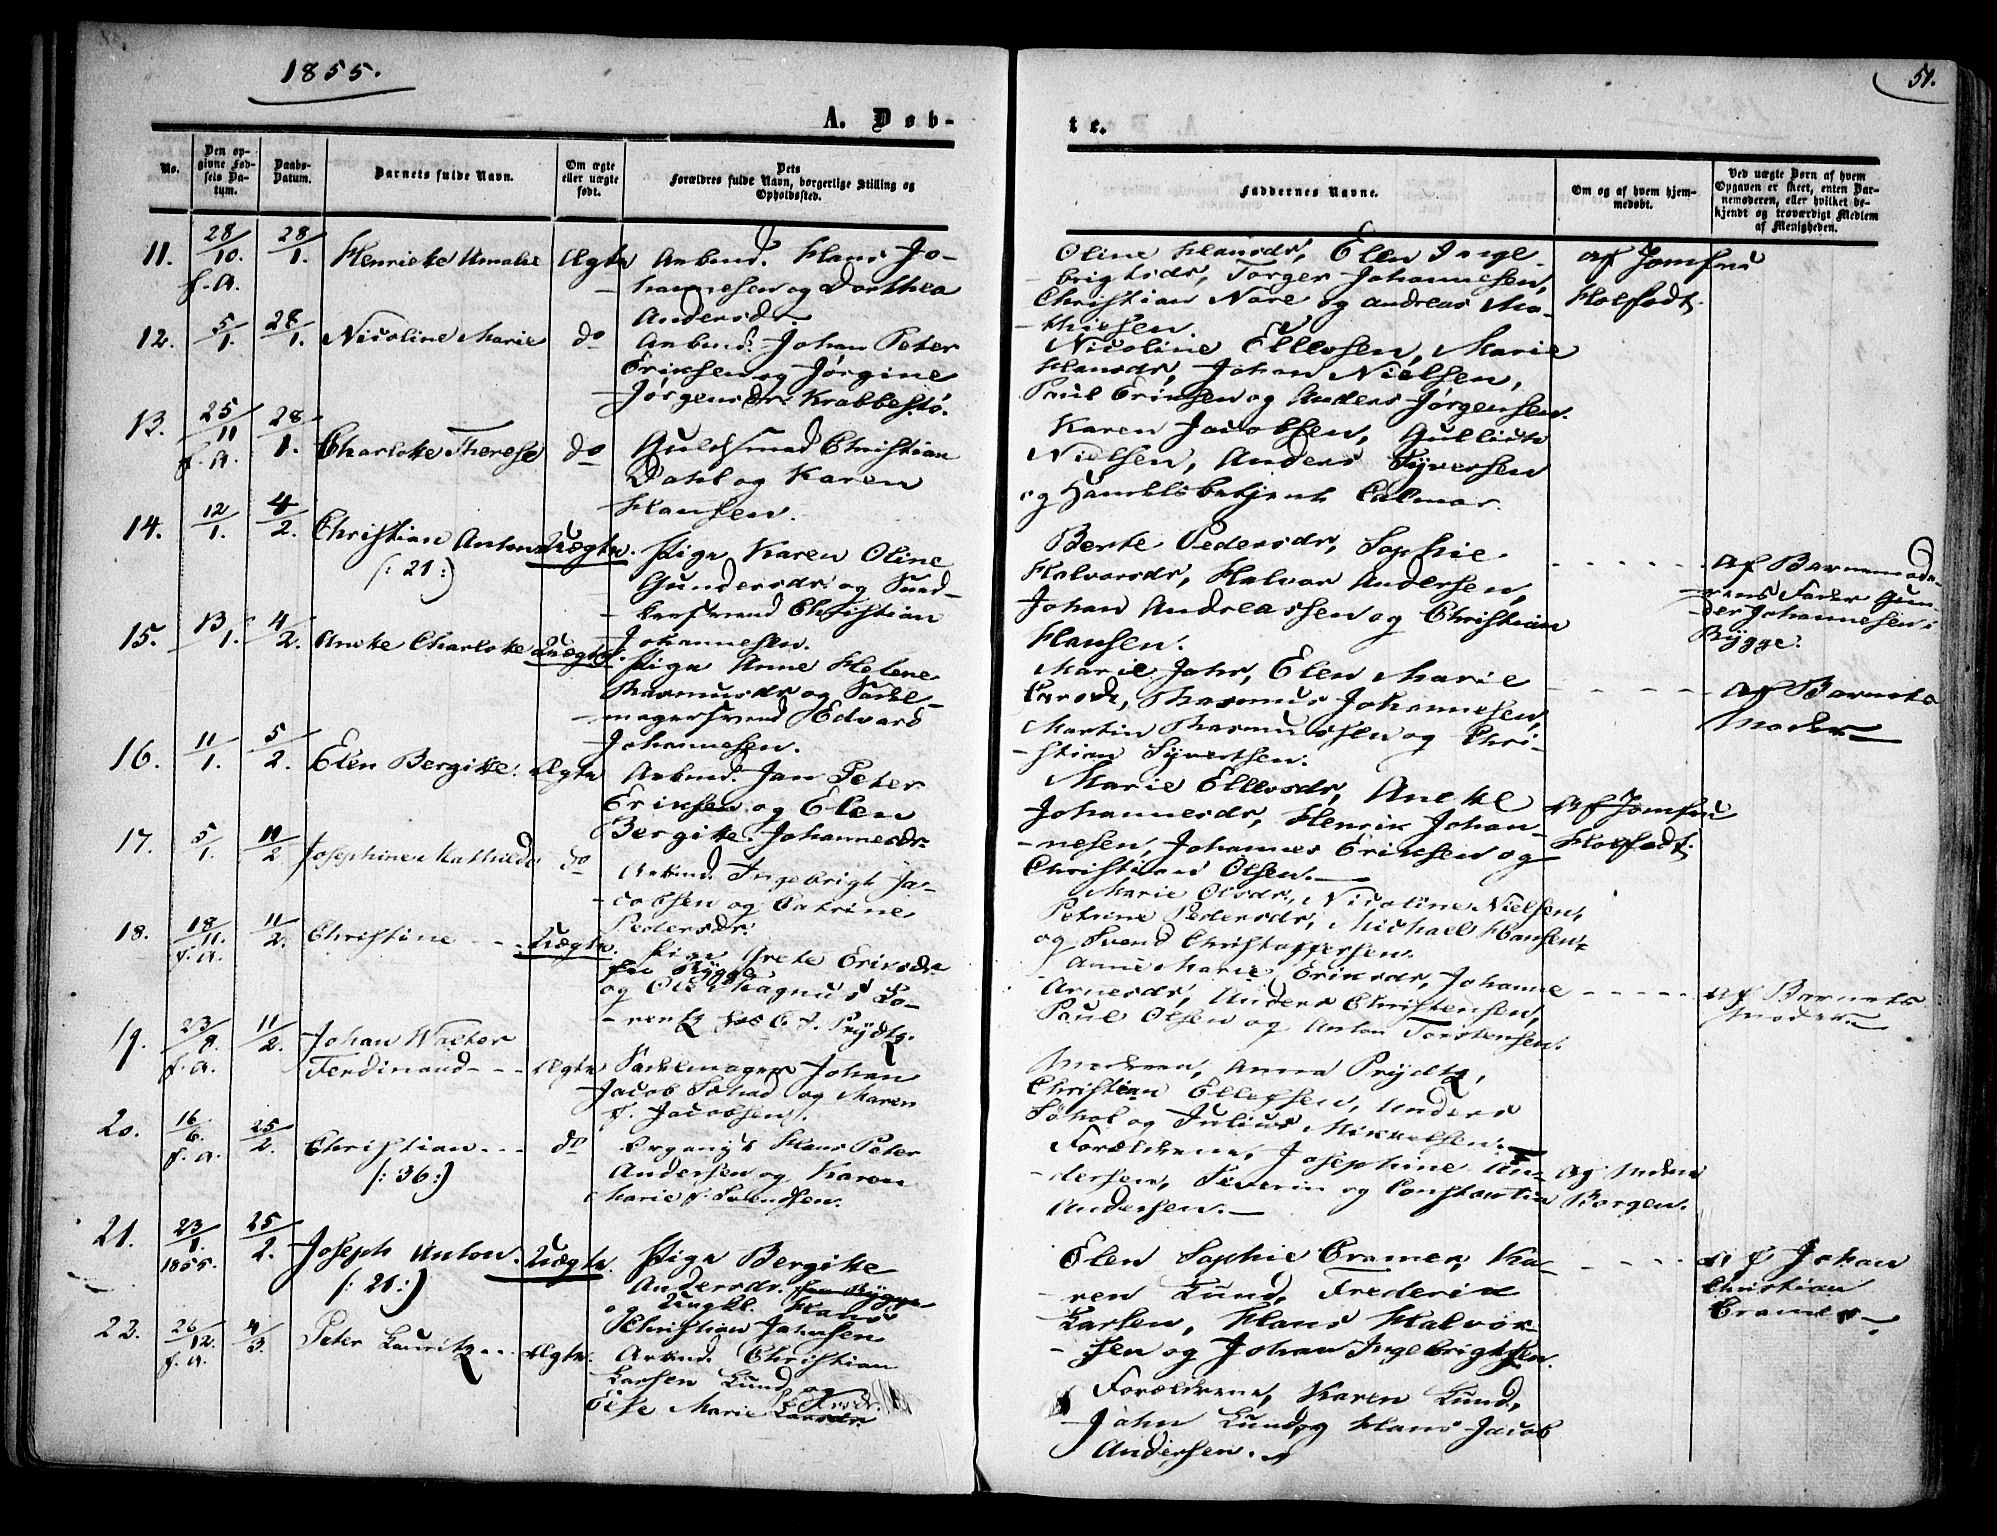 1855.
51.
A. Døb-
te.
No.
Den op-
givne Fød-
sels Da-
tum.
Daabs-
Datum.
Barnets fulde Navn.
Om ægte
eller uægte
født.
Dets
Forældres fulde Navn, borgerlige Stilling og
Opholdssted.
Faddernes Navne.
Om og af hvem hjem-
medøbt.
Ved uægte Børn af hvem
Opgaven er skeet, enten Bar-
nemoderen, eller hvilket be-
kjendt og troværdigt Medlem
af Menigheden.
11. 28/10. f. A. 28/1. Henriette Amalie Ægte
Arbmd. Hans Jo-
hannesen og Dorthea
Andersdr.
Oline Hansdr, Elen Inge-
brigtsdr, Torger Johannesen,
Christian Nare og Andreas Ma-
thiesen.
Af Jomfru
Holfodt.
12. 5/1. 28/1. Nicoline Marie do
Arbmd. Johan Peter
Eriksen og Jørgine
Jørgensdr. Krabbestø.
Nicoline Ellevsen, Marie
Hansdr, Johan Nielsen,
Paul Eriksen og Anders Jørgensen.
13. 25/11 f. A. 28/1. Charlotte Therese do
Guldsmed Christian
Dahl og Karen
Hansen.
Karen Jacobsen,
Nielsen, Anders Syversen
og Handelsbetjent Calmar.
14. 12/1. 4/2. Christian Anton Uægte.
(: 21 :)
Pige Karen Oline
Gundersdr. og Sned-
kersvend Christian
Johannesen.
Berte Pedersdr, Sophie
Halvorsdr, Halvor Andersen,
Johan Andreassen og Christian
Hansen.
Af Barnemode-
rens Fader Gun-
der Johannesen i
Rygge.
15. 13/1. 4/2. Anette Charlotte Uægte.
Pige Anne Helene
Rasmusdr og Sadel-
magersvend Edvard
Johannesen.
Marie Johr, Elen Marie
Larsdr, Rasmus Johannesen,
Martin Rasmussen og Chri-
stian Syvertsen.
Af Barnets
Moder
16. 11/1. 5/2. Elen Bergitte. Ægte
Arbmd. Jan Peter
Eriksen og Elen
Bergitte Johannesdr.
Marie Ellevsdr, Anette
Johannesdr, Henrik Johan-
nesen, Johannes Eriksen og
Christian Olsen.
Af Jomfru
Holfodt.
17. 5/1. 11/2. Josephine Mathilde do
Arbmd. Ingebrigt Ja-
cobsen og Catrine
Pedersdr.
Marie Olsdr, Nicoline Nielsen,
Petrine Pedersdr, Michael Hansen
og Svend Christophersen.
18. 18/11. f. A. 11/2. Christine Uægte.
Pige Grete Eriksdr
fra Rygge
og Ole Magnus Lo-
rentz Prydtz.
Anne Marie Eriksdr, Johanne
Arnesdr, Anders Christensen,
Paul Olsen og Anton Torstensen.
Af Barnets
Moder
19. 23/9. f. A. 11/2. Johan Walter
Ferdinand Ægte
Sadelmager Johan
Jacob Søhol og Maren
f. Jacobsen.
Moderen, Anna Prydtz,
Christian Ellefsen, Anders
Søhol og Julius Mikkelsen.
20. 16/6. f. A. 25/2. Christian do
(: 36 :)
Organist Hans Peter
Andersen og Karen
Marie f. Svendsen.
Forældrene, Josephine An-
dersen, Severin og Constantin
Andersen.
Borgen.
21. 23/1. 1855. 25/2. Joseph Anton. Uægte.
(: 21 :)
Pige Bergitte
Andersdr. fra Rygge
og Ungkl. Hans
Christian Johnsen
Elen Sophie Cramer, Ka-
ren Lund, Frederik
Larsen, Hans Halvor-
sen og Johan Ingebrigtsen.
Af Johan
Christian
Cramer.
22. 26/12. f. A. 4/3. Peter Lauritz Ægte.
Arbmd. Christian
Larsen Lund og
Else Marie Larsdr
Forældrene, Karen Lund,
John Lund og Hans Jacob
Andersen.